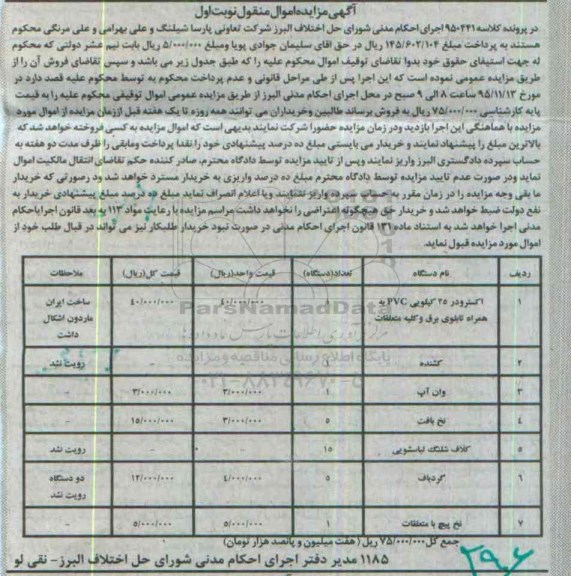 آگهی مزایده اموال منقول نوبت اول
در پرونده کلاسه ۹۵۰۴۴۱ اجرای احکام مدنی شورای حل اختلاف البرز شرکت تعاونی پارسا شیلنگ و علی بهرامی و علی مرنگی محکوم
هستند به پرداخت مبلغ ۱۴۵/۶۰۲/۱۰۴ ریال در حق اقای سلیمان جوادی پویا ومبلغ ۵/۰۰۰/۰۰۰ ریال بابت نیم عشر دولتی که محکوم
له جهت استیفای حقوق خود بدوا تقاضای توقیف اموال محکوم علیه را که طبق جدول زیر می باشد و سپس تقاضای فروش آن را از
طریق مزایده عمومی نموده است که این اجرا پس از طی مراحل قانونی و عدم پرداخت محکوم به توسط محکوم علیه قصد دارد در
مورخ ۹۵/۱۱/۱۳ ساعت ۸ الی ۹ صبح در محل اجرای احکام مدنی البرز از طریق مزایده عمومی اموال توقیفی محکوم علیه را به قیمت
پایه کارشناسی ۷۵/۰۰۰/۰۰۰ ریال به فروش برساند طالبین وخریداران می توانند همه روزه تا یک هفته قبل اززمان مزایده از اموال مورد
مزایده با هماهنگی این اجرا بازدید ودر زمان مزایده حضورا شرکت نمایند بدیهی است که اموال مزایده به کسی فروخته خواهد شد که
بالاترین مبلغ را پیشنهاد نمایند و خریدار می بایستی مبلغ ده درصد پیشنهادی خود را نقدا پرداخت ومابقی را ظرف مدت دو هفته به
حساب سپرده دادگستری البرز واریز نمایند وپس از تایید مزایده توسط دادگاه محترم، صادر کننده حکم تقاضای انتقال مالکیت اموال
نماید ودر صورت عدم تایید مزایده توسط دادگاه محترم مبلغ ده درصد واریزی به خریدار مسترد خواهد شد ود رصورتی که خریدار
ما بقی وجه مزایده را در زمان مقرر به حساب سپرده واریز ننمایند ویا اعلام انصراف نماید مبلغ ده درصد مبلغ پیشنهادی خریدار به
نفع دولت ضبط خواهد شد و خریدار حق هیچگونه اعتراضی را نخواهد داشت مراسم مزایده با رعایت مواد ۱۱۳ به بعد قانون اجرای احکام
مدنی اجرا خواهد شد به استناد ماده ۱۳۱ قانون اجرای احکام مدنی در صورت نبود خریدار طلبکار نیز می تواند در قبال طلب خود از
اموال مورد مزایده قبول نماید.
ردیف نام دستگاه تعداد(دستگاه) قیمت واحد(ریال) قیمت کل(ریال) ملاحظات
۱ اکسترودر ۲۵ کیلویی PVC به همراه تابلوی برق وکلیه متعلقات ۱ ۴۰/۰۰۰/۰۰۰ ۴۰/۰۰۰/۰۰۰ ساخت ایران ماردون اشکال داشت
۲ کشنده ۱ - - رویت نشد
۳ وان آب ۱ ۳/۰۰۰/۰۰۰ ۳/۰۰۰/۰۰۰ -
۴ نخ بافت ۵ ۳/۰۰۰/۰۰۰ ۱۵/۰۰۰/۰۰۰ -
۵ کلاف شلنگ لباسشویی ۱۵ - - رویت نشد
۶ گردباف ۵ ۴/۰۰۰/۰۰۰ ۱۲/۰۰۰/۰۰۰ دو دستگاه رویت نشد
۷ نخ پیچ با متعلقات ۱ ۵/۰۰۰/۰۰۰ ۵/۰۰۰/۰۰۰ -
جمع کل ۷۵/۰۰۰/۰۰۰ ریال (هفت میلیون و پانصد هزار تومان)
۱۱۸۵ مدیر دفتر اجرای احکام مدنی شورای حل اختلاف البرز- نقی لو
ParsNamadData
پایگاه اطلاع رسانی مناقصه و مزایده
۰۲۱-۸۸۳۴۹۶۷۰-۵
۲۹۰۶